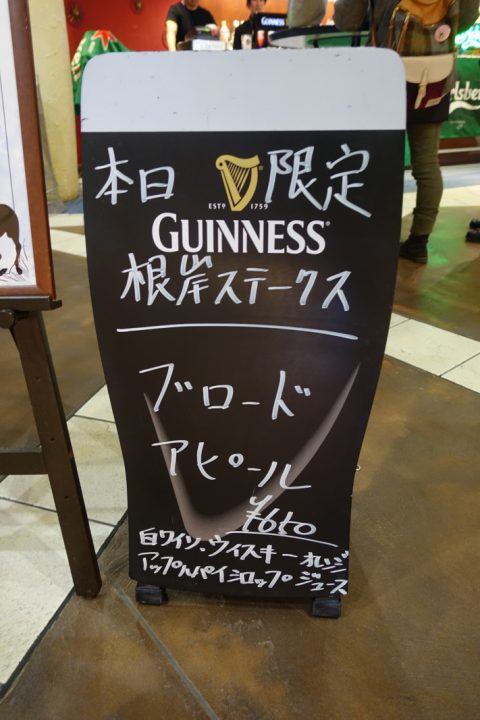 GUINNESS
lsber
本日 限定
ESTD 1759
GUINNESS
根岸ステークス
ブロード
アピール
¥650
白ワイン・ウィスキー オレンジ
アップルパイシロップ ジュース